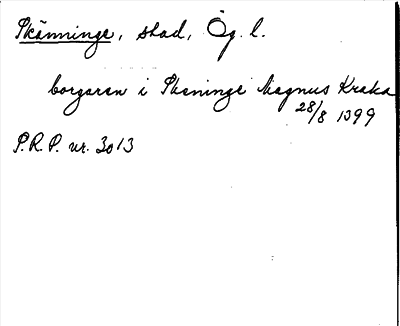 Skänninge, stad, Ög. l.
borgaren i Skeninge Magnus Kraka
28/8 1399
P.R.P. nr. 3013